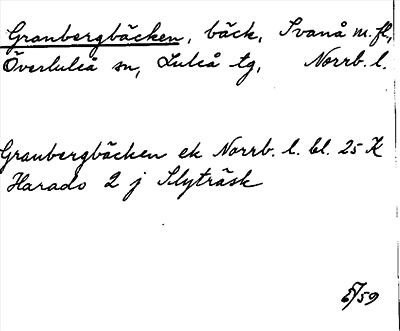 Granbergbäcken, bäck, Svanå m. fl,
Överluleå sn, Luleå tg, Norrb. l.
Granbergbäcken ek Norrb. l. bl. 25 K
Harads 2 j Slyträsk
6/59